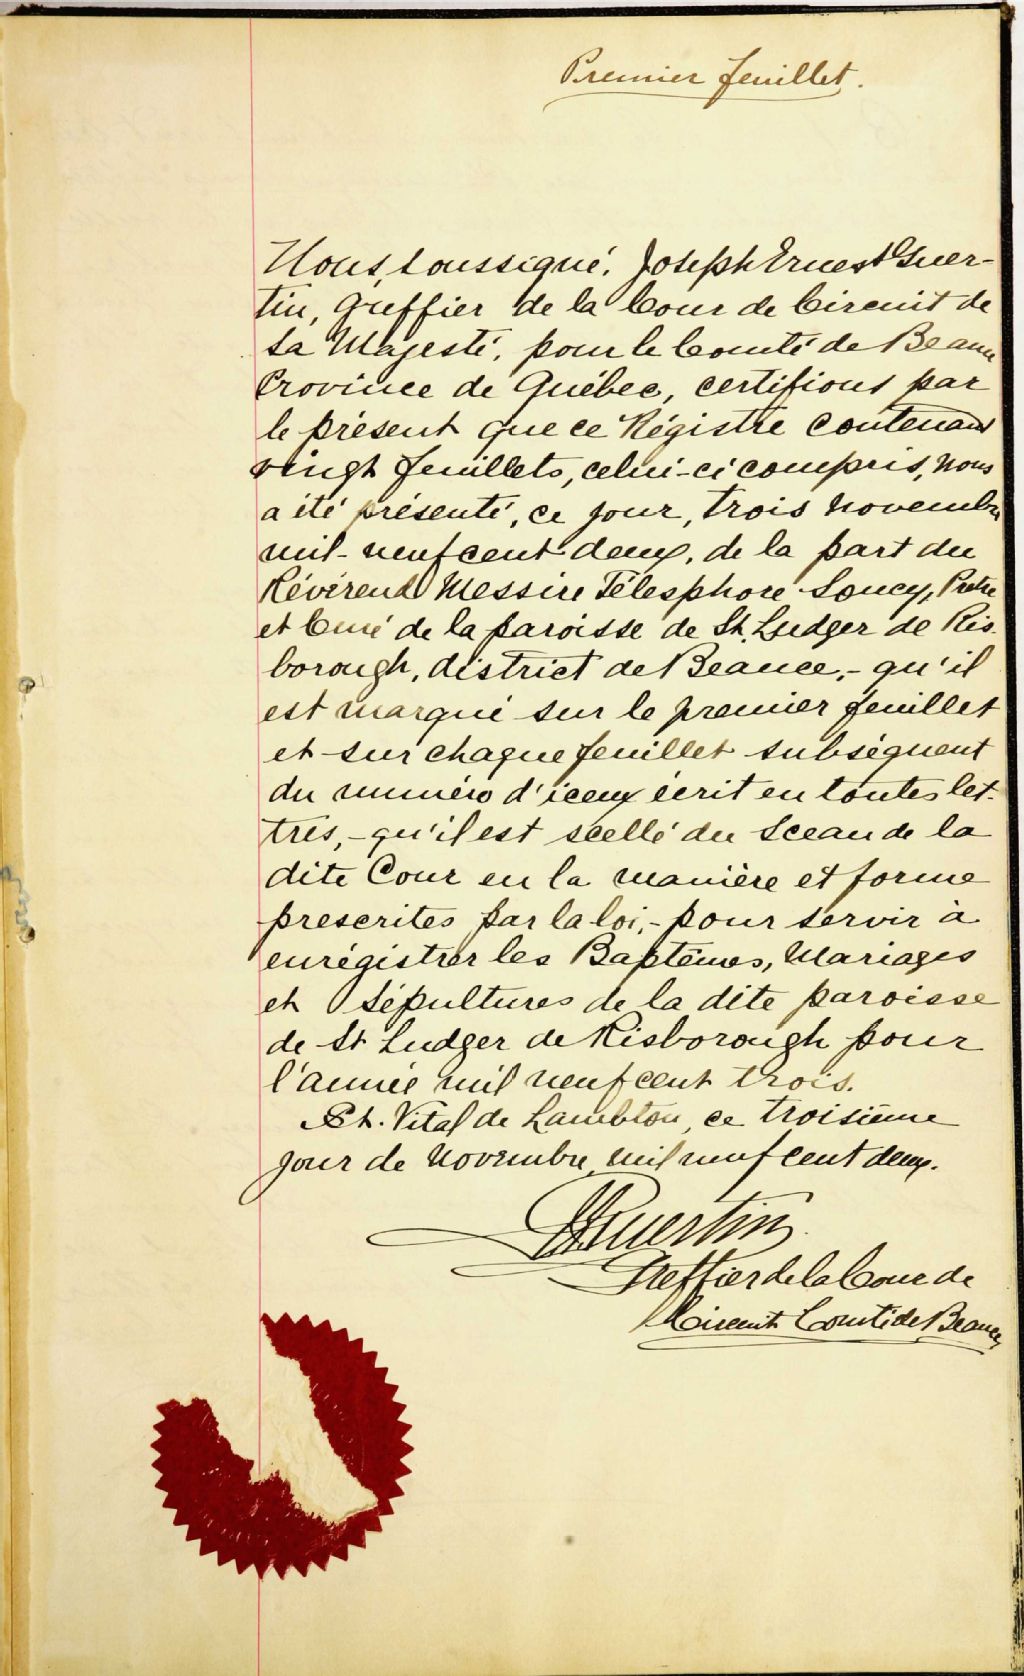 Premier feuillet.
Nous, soussigné, Joseph Ernest Guer-
tin, Greffier de la Cour de Circuit de
Sa Majesté, pour le Comté de Beauce
Province de Québec, certifions par
le présent que ce Régistre contenant
vingt feuillets, celui-ci compris, nous
a été présenté, ce jour, trois novembre
mil-neuf cent deux, de la part du
Révérend Messire Télesphore Soucy, Prêtre
et Curé de la paroisse de St. Ludger de Ris-
borough, district de Beauce,- qu'il
est marqué sur le premier feuillet
et sur chaque feuillet subséquent
du numéro d'iceux écrit en toutes let-
tres,- qu'il est scellé du Sceau de la
dite Cour en la manière et forme
prescrites par la loi,- pour servir à
enrégistrer les Baptêmes, Mariages
et Sépultures de la dite paroisse
de St Ludger de Risborough pour
l'année mil neuf cent trois.
St. Vital de Lambton, ce troisième
jour de novembre mil neuf cent deux.
JEGuertin
Greffier de la Cour de
Circuit Comté de Beauce